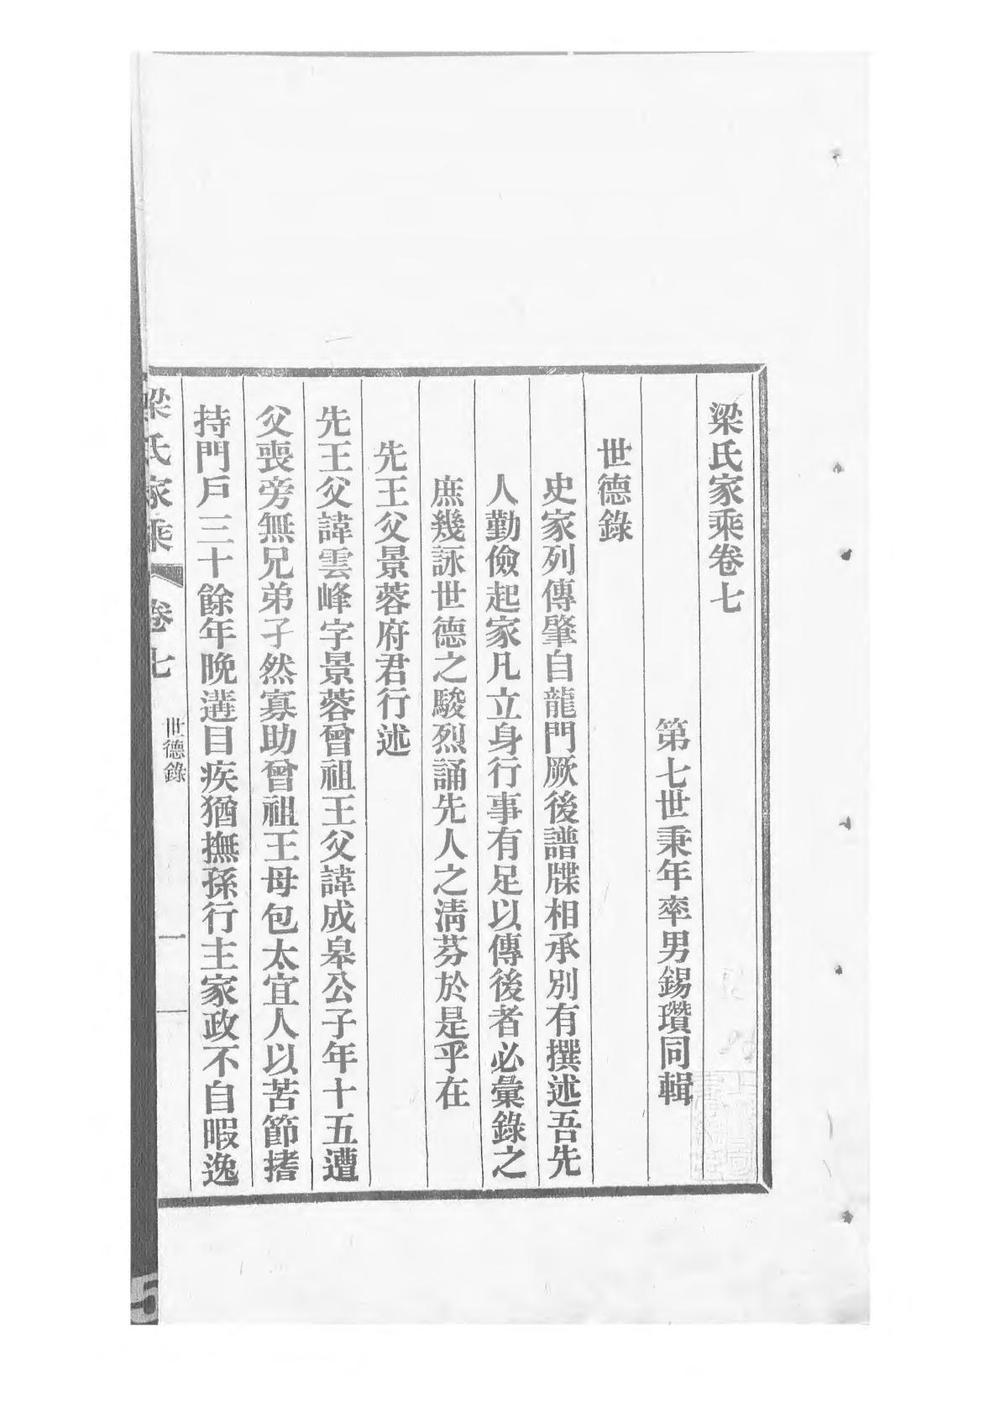 梁氏家乘卷七
第七世秉年率男錫瓚同輯
世德錄
史家列傳肇自龍門厥後譜牒相承別有撰述吾先
人勤儉起家凡立身行事有足以傳後者必彙錄之
庶幾詠世德之駿烈誦先人之清芬於是乎在
先王父景蓉府君行述
先王父諱雲峰字景蓉曾祖王父諱成皋公子年十五遭
父喪旁無兄弟孑然寡助曾祖王母包太宜人以苦節搘
持門戶三十餘年晚遘目疾猶撫孫行主家政不自暇逸
梁氏家乘 卷七 世德錄 一